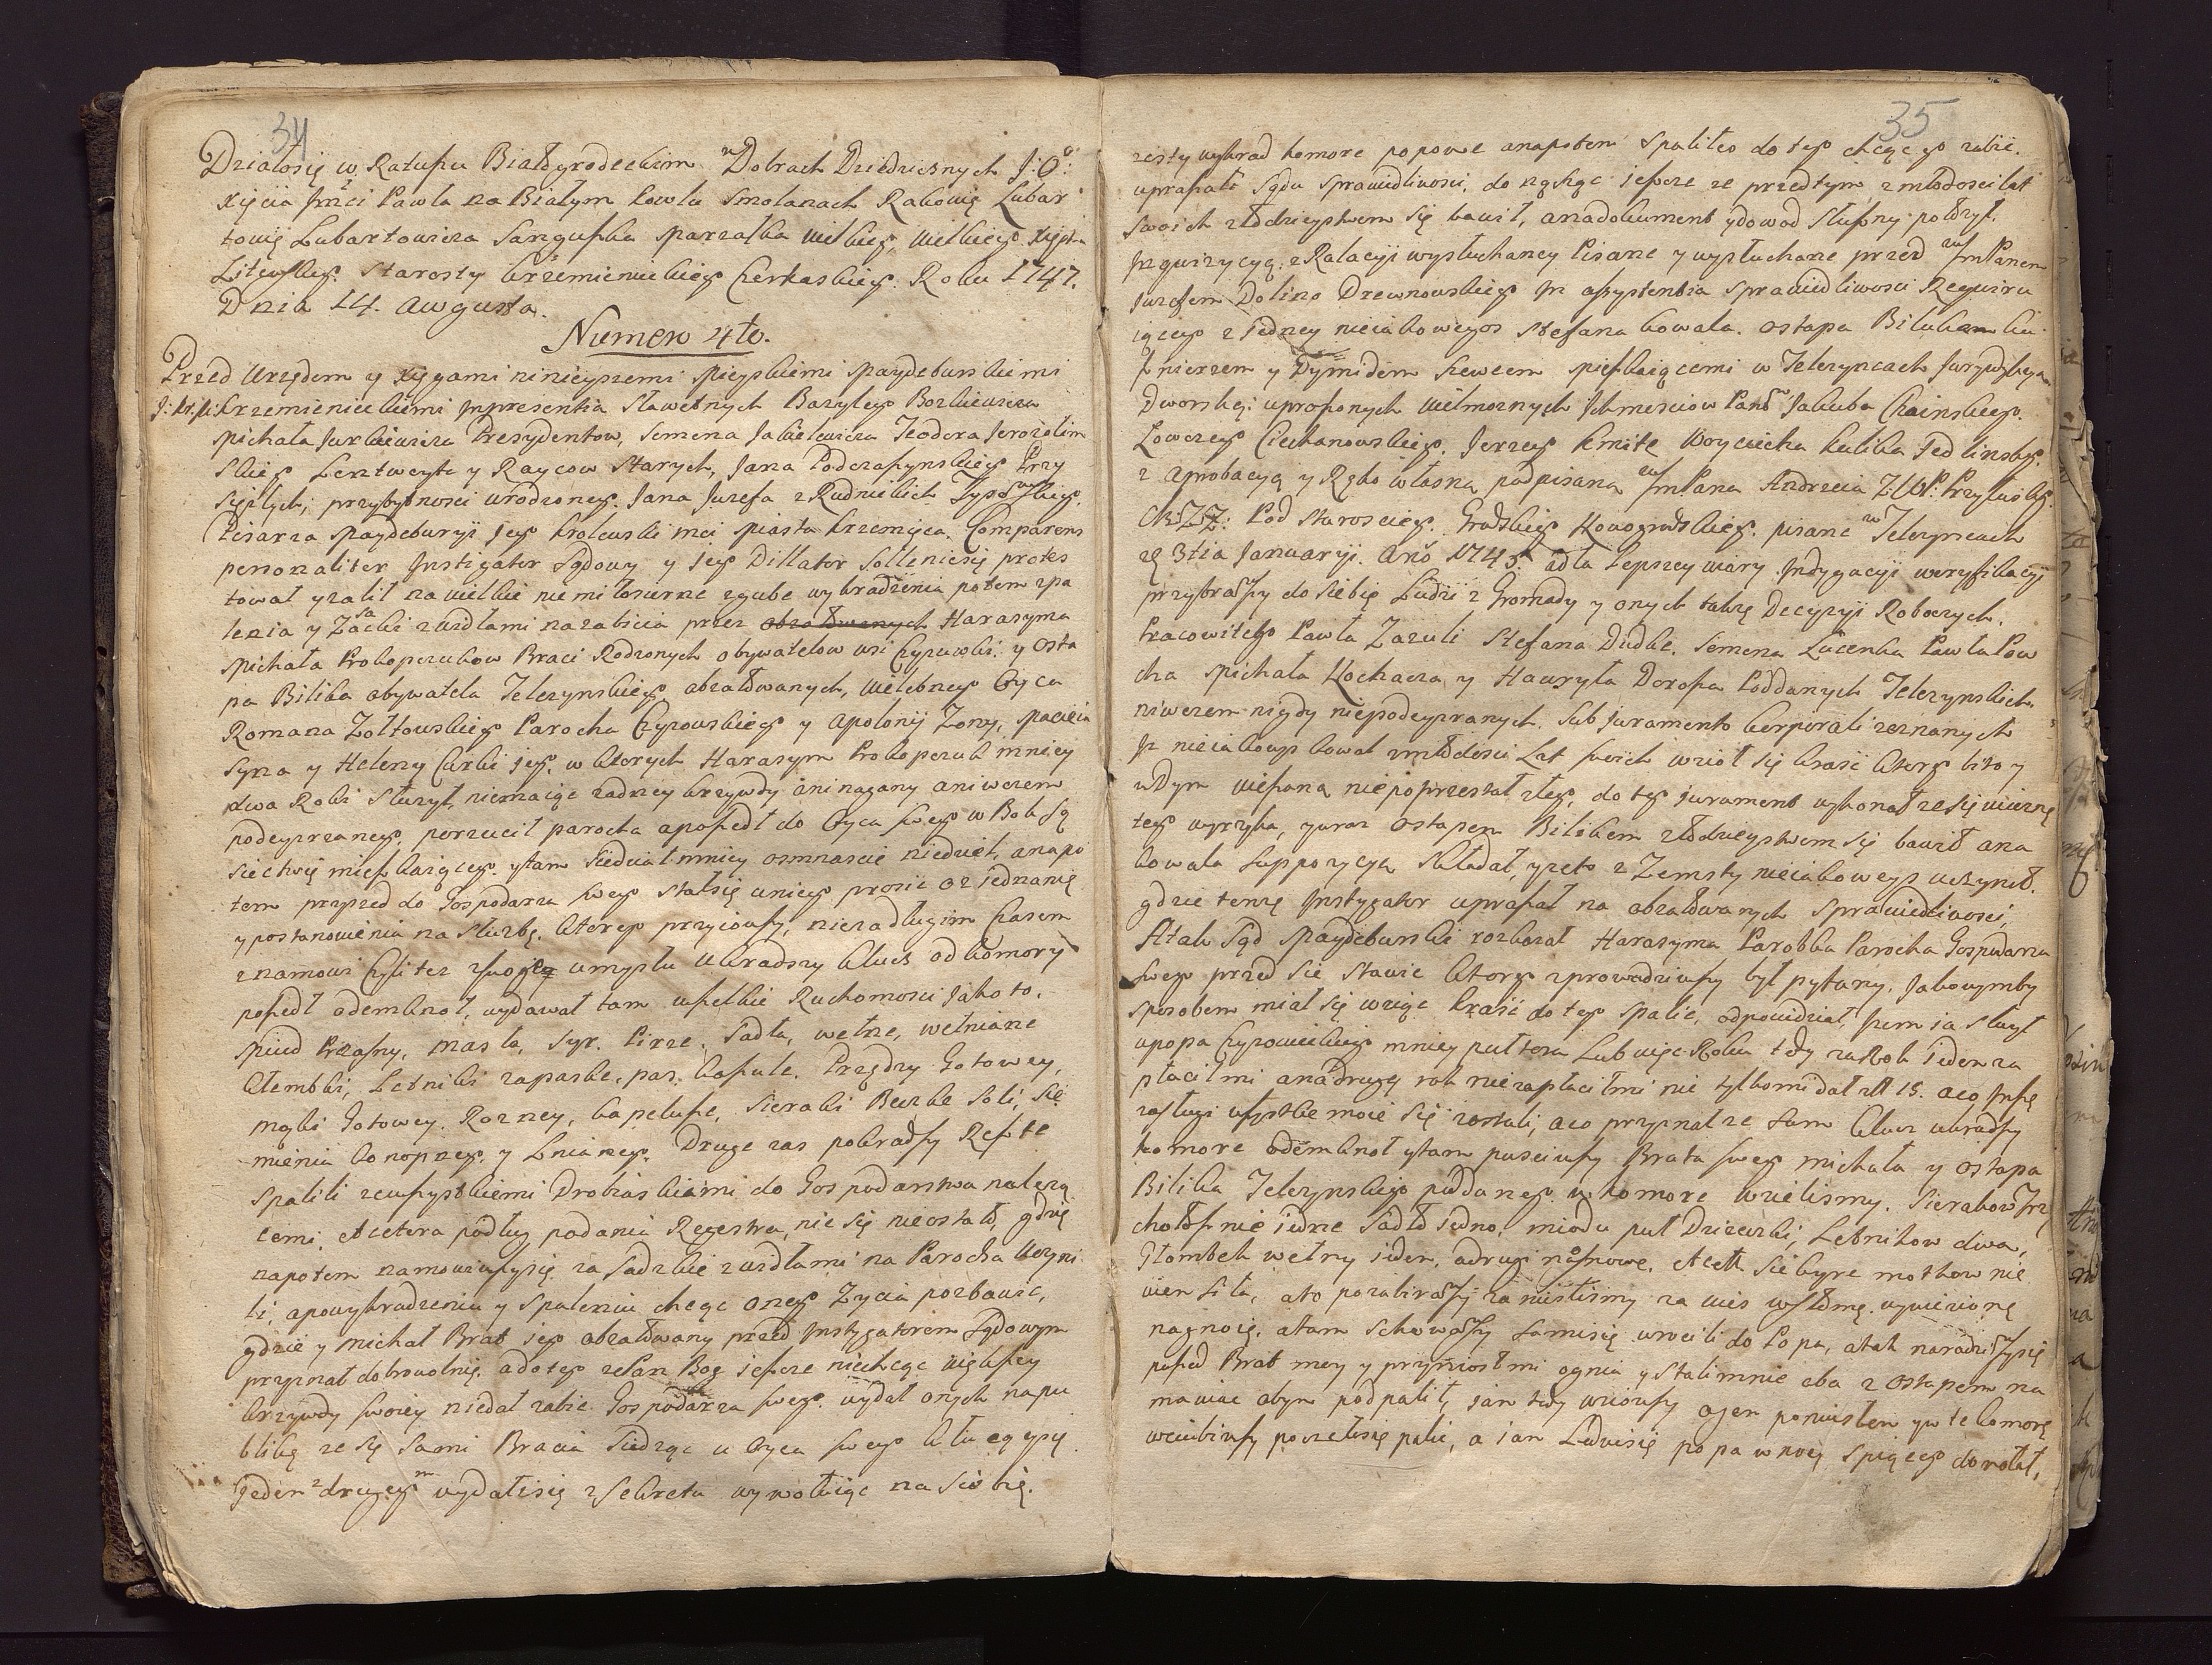 34
Działosię w Ratuszu Białogrodeckim w Dobrach Dziedzicznych J: O:
Xięcia Jmći Pawła na Białym Kowlu Smolanach Rakowię Lubar
towię Lubartowicza Sanguszka Marszałka wielkieg, wielkiego Xięstwa
Litewskieg. Starosty krzemienieckieg Czerkaskieg. Roku 1747.
Dnia 14. Awgusta.
Numero 4to.
Przed Urzędem y xięgami ninieyszemi Mieyskiemi Maydeburskiemi
J: kr: M: krzemienieckiemi Inpresentia Sławetnych Bazyleg
Michała Jurkiewicza Prezydentow, Semena Jakielewicza Teodora Jerozolim
skieg Lentwoyta y Raycow Starych, Jana Podczaszynskieg Przy
sięzłych, przybytnosci urodzoneg. Jana Juzefa z Rudnickich
Pisarza Maydeburyi Jeg krolewski mci Miasta krzemięca. Comparens
personaliter Instigator Sądowy y Jeg Dillator Sollenięsię protes
tował yzalił na wielkie niemiłosierne zgube wykradzenia potem spa
lenia y Zasacki zwidłami nazabicia przez obzałowanych Harasyma
Michała Prokopczukow Braci Rodzonych obywatelow wsi Czyzuwki. y Osta
pa Bilika obywatela Telezynskieg obzałowanych, wielebneg Oyca
Romana Zołtowskieg Parocha Czyzowskieg y Apolonij Zony, Macieia
Syna y Heleny Curki jeg. w ktorych Harasym Prokopczuk mniey
dwa Roki słuzył, niemaiąc zadney krzywdy aninagany aniwczem
podeyzraneg, porzucił parocha aposzedł do Oyca sweg w Bok
siectwię mieszkaiąceg. ytam siedział mniey osmnascie niedziel, anapo
tem przyszed do Gospodarza sweg stałsię unieg prosic oziednanię
ypostanowienia na słuzbę. ktoreg przyiowszy, niezadługim Czasem
znamowi Czylitez zswoieg umysłu ukradszy klucz od komory
poszedł odemknoł, wydawał tam wszelkie Ruchomosci Jako to.
spiud Przasny, Masla, Syr. Pirze. Sadła, wełne, wełniane
kłembki, Letniki zapaske, pas, koszule. Przędzy Gotowey,
mąki Gotowey. Rozney, kapelusze, sieraki Beczke Soli, Się
mienia konopneg. y Lnianeg. Druge zas pokradszy Reszte
spalili zewszystkiemi Drobiazkiami do Gospodarstwa nalezą
cemi. et cetera podług podania Regestra, nic się nieostało, gdzię
napotem namowiwszysię zasadzkie zwidłami na Parocha Uczyni
li, apowykradzeniu y spaleniu chcąc oneg Zycia pozbawic,
gdzie y Michał Brat jego obzałowany przed Instygatorem Sądowym
przyznał dobrowolnię. adoteg zePan Bog jeszcze niechcąc większey
krzywdy swoiey niedał zabic Gospodarza sweg. wydał onych napu
blikę ze się sami Bracia siedząc u Oyca sweg
jeden z drugieg wydalisię zsekretu wywołuiąc na siebię.
35
zesty wykrad komore popowe anapotem spaliłeo do teg chcąc go zabic.
upraszałs Sądu sprawiedliwosci, do jeszcze ze przedtym zmłodoscilat
swoich złodzieystwem się bawił, anadokument ydowod słuszny połozył.
Inquizycyą z Ralacyji wysłuchaney Pisane y wysłuchane przed Jm Panem
Jurzefem Dolino Drewnowskieg In assystentia sprawiedliwosci Requiru
iąceg z iedney nieiakowegos Stefana kowala. Ostapa Biluka
sznierzem y Dymidem szewcem mieszkaiącemi w Telezyncach Jurysdykcyi
Dworskej uproszonych wielmoznych Ichmosciow Panow Jakuba Chainskieg.
Łowczeg Ciechanowskieg. Jerzeg kmite Woyciecha kulika Jedlinskieg.
z Aprobacyą y Ręko własną podpisaną Jm Pana Andrzeia Z: W: P:
CKSZZ: Pod Starosciego. Grodskieg Nowogrodskieg. pisane w Telezyncach
3tia Januaryji. Ano 1745. adla Lepszey wiary Indygacyji weryfikacyji
przybrawszy do siebię Ludzi z Gromady y onych takzę Decyzyji Roboczych.
Pracowiteg Pawła Zazuli Stefana Dudke. Semena Lucenka Pawla Pow
cha Michała Kochacza y Hawryła Dorosza Poddanych Telezynskich
niwczem nigdy niepodeyzranych. Sub juramento Corporali zeznanych
Iz nieiakowys kowal zmłodosci Lat swoich wzioł się krasc ktoreg bito y
wDym wieszaną niepoprzestał zleg, do teg jurament wykonał zesię wiecznę
teg wyrzyka, yuraz Ostapem Bilikem złodzieystwem się bawił ana
kowala suppozycyą składał, yzeto z Zemsty nieiakowegs uczynił.
gdzie tenzę Instygator upraszał na obzałowanych sprawiedliwosci,
Atak Sąd Maydeburski rozkazał Harasyma Parobka Parocha Gospodarza
sweg przed się stawic ktoreg zprowadziwszy był pytany. Jakowymby
sposobem miał się wziąc krasć do teg spalic, odpowidział, zem ia służył
upopa Czyzowieckieg mniey pułtora Lub więc Roku tedy zaRok ieden za
płacił mi anadrugę rok niezapłacił mi nic tylkomi dał zł 15. aeo
zasługi wszystkie moie się zostali, aeo przyznał ze sam klucz ukradszy
komore odemknoł ytam pusciwszy Brata sweg michała y Ostapa
Bilika Telezynskiego poddaneg w komore wzielismy. Sierakow
chołosznie iedne Sadło iedno, miodu puł Dziezki, Letnikow dwa,
Głombek wełny iden, adrugi Et cett siekyre motkow nie
wiem siła, ato pozabirawszy zanieslismy za wies wsłomę. wywiezionę
nagnoię. atam schowawszy samisię wrocili do Popa, atak naradziwszysię
poszed Brat moy y przyniosł mi ognia y stalimnie oba z Ostapem na
mawiac abym podpalił, iam tedy wziowszy ogen poniusłem ywte komorę
weiubiwszy poczelisię palic, a iam Ludwisię popa w nocy spiąceg dowołał,